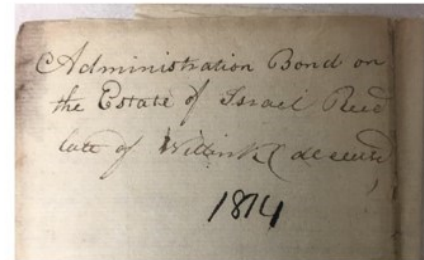 Administration Bond on
the Estate of Israel Reed
late of Willink deceased
1814